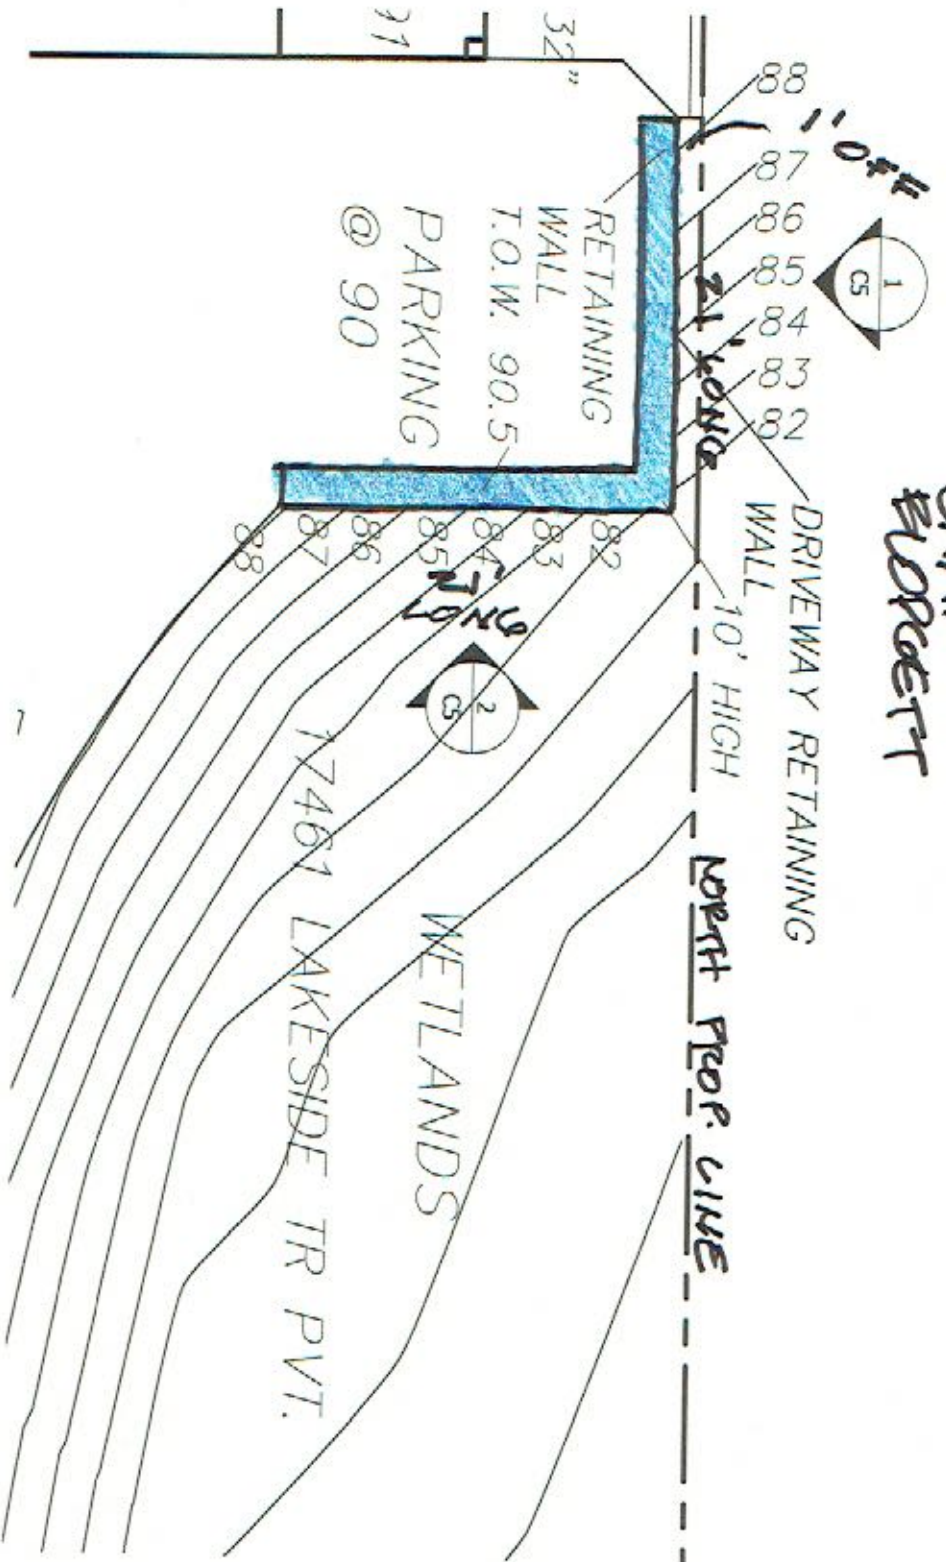 88
87
86
85
84
83
82
1' OFF
1
C5
21' LONG
DRIVEWAY RETAINING
WALL
10' HIGH
NORTH PROP. LINE
32"
RETAINING
WALL
T.O.W. 90.5
PARKING
@ 90
82
83
84
85
86
87
88
LONG
2
C5
WETLANDS
17461 LAKESIDE TR PVT.